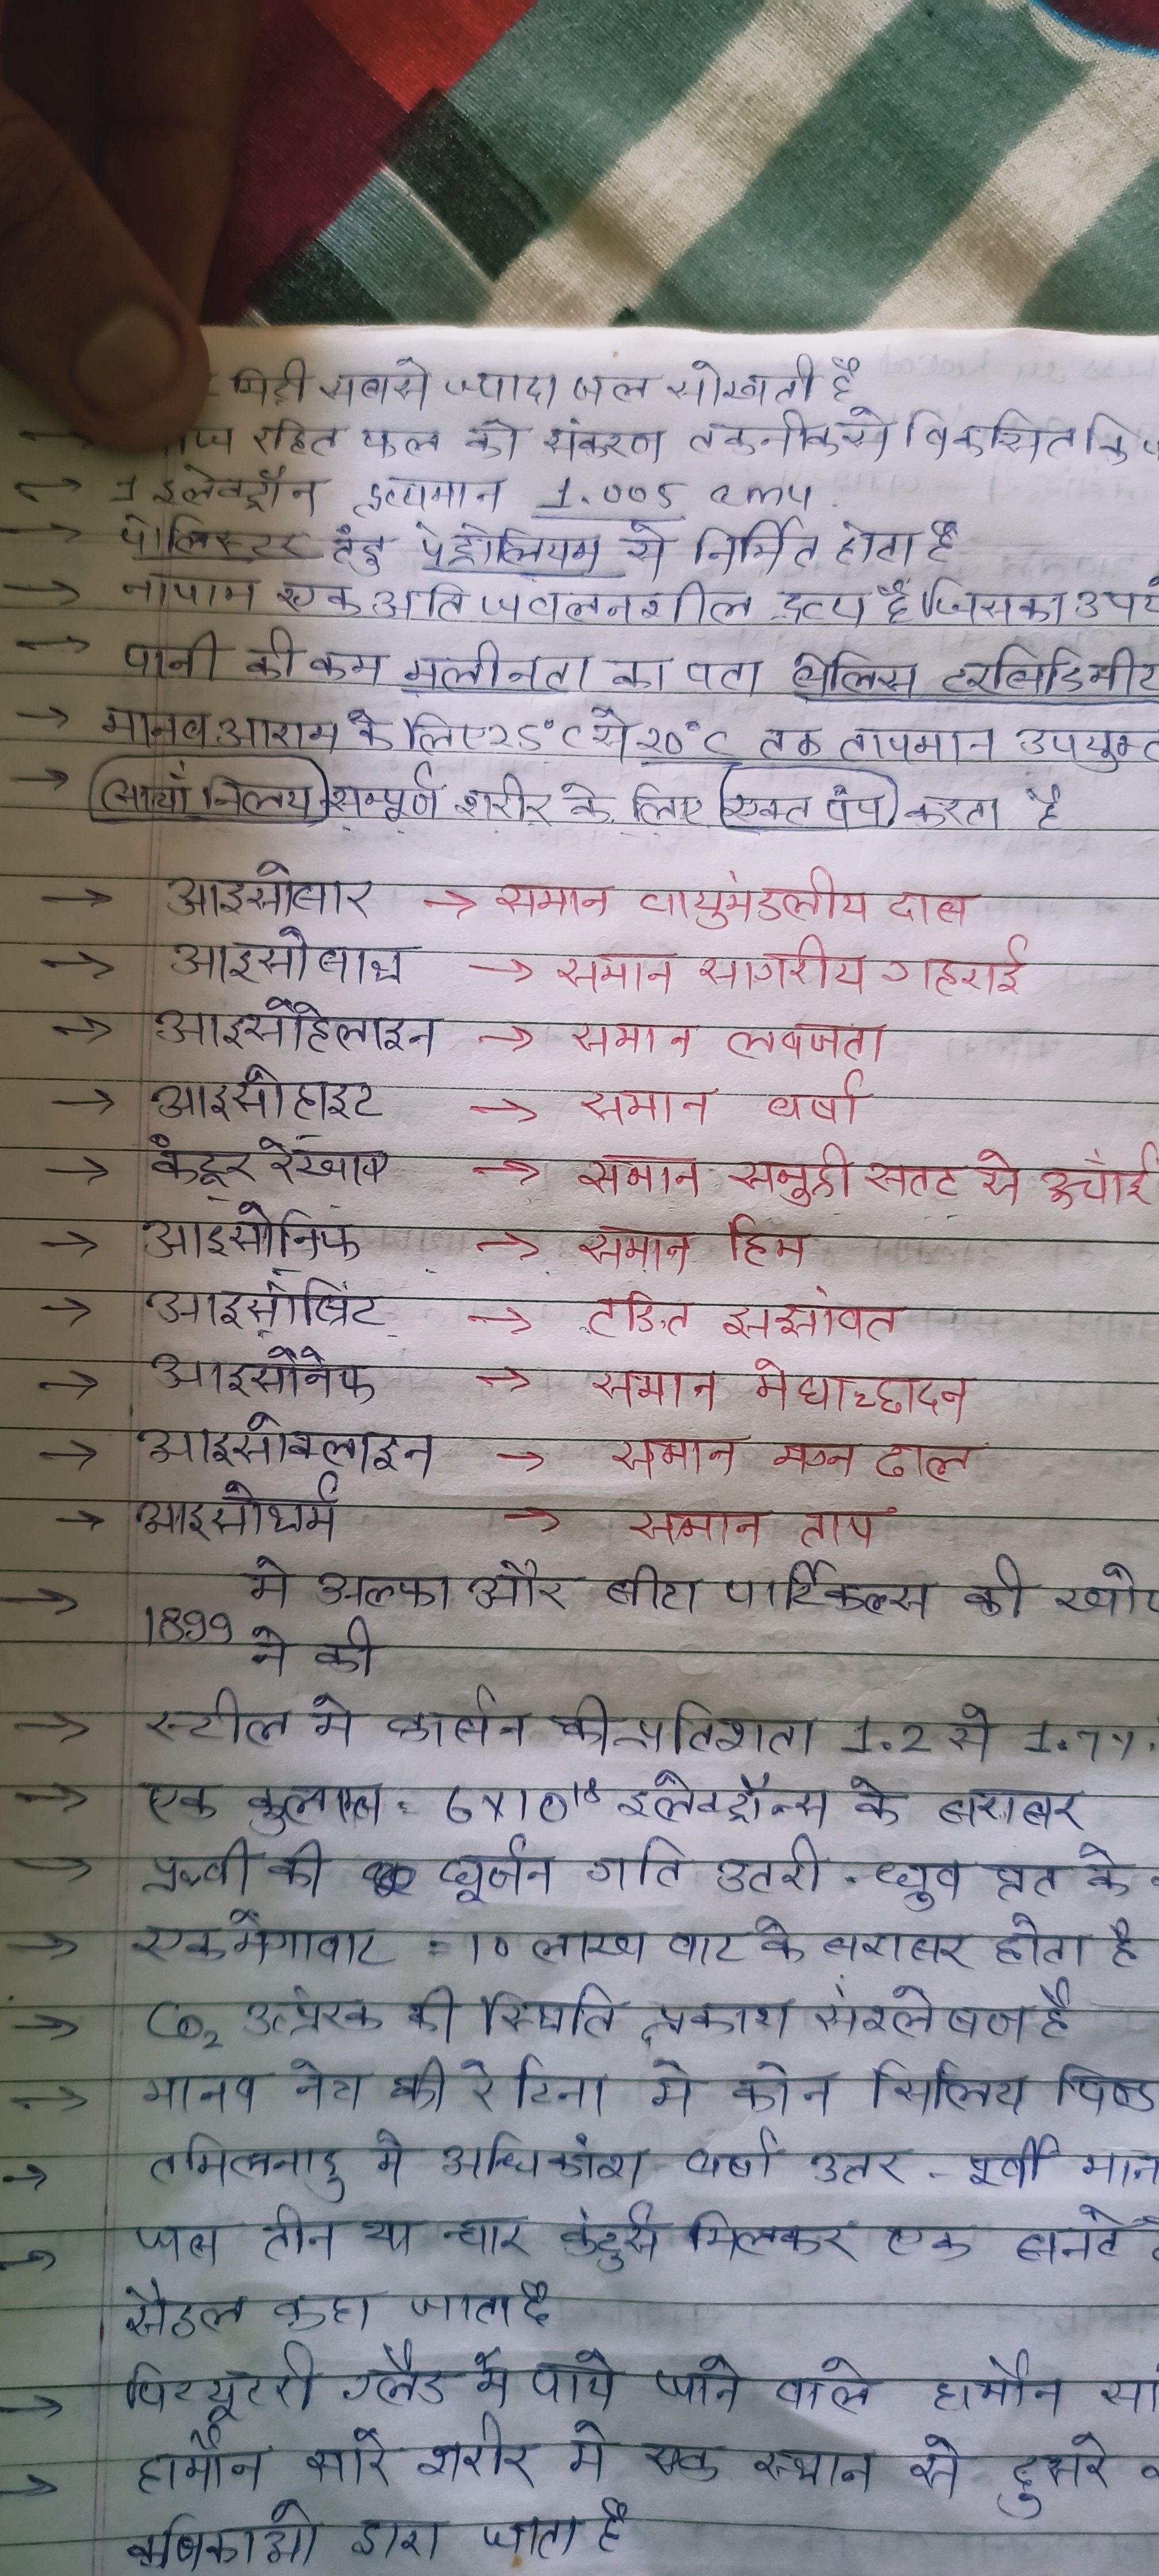 मिट्टी सबसे ज्यादा जल सोखती है
→ रहित फल को संकरण तकनीक से विकसित
→ 1 इलेक्ट्रॉन द्रव्यमान 1.005 amu
→ पोलिस्टर तंतु पेट्रोलियम से निर्मित होता है
→ नापाम एक अति ज्वलनशील द्रव्य है जिसका
→ पानी की कम मलीनता का पता
→ मानव आराम के लिए 25°C से 20°C तक तापमान
→ बायाँ निलय सम्पूर्ण शरीर के लिए रक्त पंप करता है
→ आइसोबार → समान वायुमंडलीय दाब
→ आइसोबाथ → समान सागरीय गहराई
→ आइसोहेलाइन → समान लवणता
→ आइसोहाइट → समान वर्षा
→ कंटूर रेखाए → समान समुद्री सतट से ऊचाई
→ आइसोनिफ → समान हिम
→ आइसोब्रिंट → तडित
→ आइसोनेफ → समान मेघाच्छादन
→ आइसोक्लाइन → समान ढाल
→ आइसोथर्म → समान ताप
→ 1899 मे अल्फा और बीटा पार्टिकल्स की
ने की
→ स्टील मे कार्बन की प्रतिशता 1.2 से 1.7%
→ एक कुलाम्ब = 6x10¹⁸ इलेक्ट्रॉन्स के बराबर
→ पृथ्वी की घूर्णन गति उतरी - ध्रुव के
→ एक मेगावाट = 10 लाख वाट के बराबर होता है
→ CO₂ उत्प्रेरक की स्थिति प्रकाश संश्लेषण है
→ मानव नेत्र की रेटिना मे कोन
→ तमिलनाडु मे अधिकांश वर्षा उतर - पूर्वी
→ जब तीन या चार कंटूर्स मिलकर एक बनते
सैडल कहा जाता है
→ पिट्यूटरी ग्लैंड में पाये जाने वाले हार्मोन
→ हार्मोन सारे शरीर मे एक स्थान से दुसरे
द्वारा जाता है